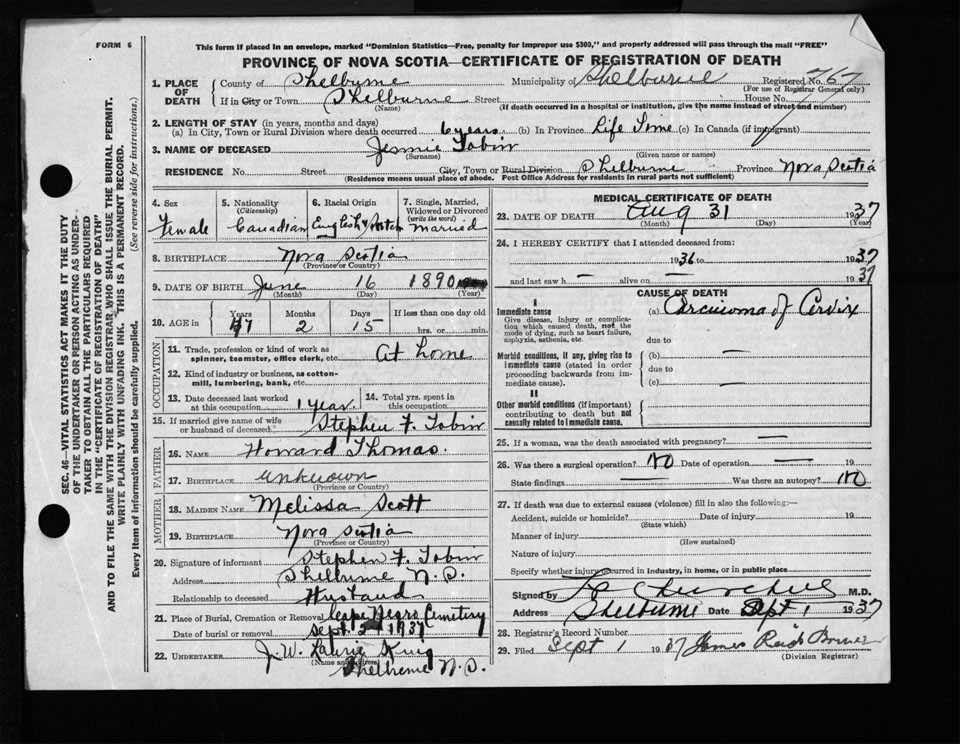 FORM 6
This form if placed in an envelope, marked "Dominion Statistics—Free, penalty for improper use $300," and properly addressed will pass through the mail "FREE"
PROVINCE OF NOVA SCOTIA—CERTIFICATE OF REGISTRATION OF DEATH
1. PLACE OF DEATH
County of Shelburne Municipality of Shelburne Registered No. 767
(For use of Registrar General only)
If in City or Town Shelburne Street House No.
(Name) (If death occurred in a hospital or institution, give the name instead of street and number)
2. LENGTH OF STAY (in years, months and days)
(a) In City, Town or Rural Division where death occurred 6 years (b) In Province Life Time (c) In Canada (if immigrant)
3. NAME OF DECEASED Jennie Tobin
(Surname) (Given name or names)
RESIDENCE No. Street City, Town or Rural Division Shelburne Province Nova Scotia
(Residence means usual place of abode. Post Office Address for residents in rural parts not sufficient)
4. Sex
Female
5. Nationality
(Citizenship)
Canadian
6. Racial Origin
English &
7. Single, Married, Widowed or Divorced
(write the word)
married
8. BIRTHPLACE Nova Scotia
(Province or Country)
9. DATE OF BIRTH June 16 1890
(Month) (Day) (Year)
10. AGE in Years Months Days If less than one day old
47 2 15 hrs. or min.
OCCUPATION
11. Trade, profession or kind of work as spinner, teamster, office clerk, etc. At home
12. Kind of industry or business, as cotton-mill, lumbering, bank, etc.
13. Date deceased last worked at this occupation 1 year
14. Total yrs. spent in this occupation
15. If married give name of wife or husband of deceased Stephen F. Tobin
FATHER
16. NAME Howard Thomas
17. BIRTHPLACE unknown
(Province or Country)
MOTHER
18. MAIDEN NAME Melissa Scott
19. BIRTHPLACE Nova Scotia
(Province or Country)
20. Signature of informant Stephen F. Tobin
Address Shelburne N.S.
Relationship to deceased Husband
21. Place of Burial, Cremation or Removal Negro Cemetery
Date of burial or removal Sept 2nd 1937
22. UNDERTAKER J. W. Laurie King
(Name and address)
Shelburne N.S.
MEDICAL CERTIFICATE OF DEATH
23. DATE OF DEATH Aug 31 1937
(Month) (Day) (Year)
24. I HEREBY CERTIFY that I attended deceased from:
1936 to 1937
and last saw h — alive on — 1937
CAUSE OF DEATH
I
Immediate cause
Give disease, injury or complication which caused death, not the mode of dying, such as heart failure, asphyxia, asthenia, etc.
(a) Carcinoma of Cervix
due to
Morbid conditions, if any, giving rise to immediate cause (stated in order proceeding backwards from immediate cause).
(b) —
due to
(c) —
II
Other morbid conditions (if important) contributing to death but not causally related to immediate cause.
25. If a woman, was the death associated with pregnancy? —
26. Was there a surgical operation? No Date of operation — 19
State findings — Was there an autopsy? No
27. If death was due to external causes (violence) fill in also the following:—
Accident, suicide or homicide? Date of injury 19
(State which)
Manner of injury
(How sustained)
Nature of injury
Specify whether injury occurred in industry, in home, or in public place
Signed by Churchill M.D.
Address Shelburne Date Sept 1 1937
28. Registrar's Record Number
29. Filed Sept 1 1937 James Reid Bower
(Division Registrar)
SEC. 46—VITAL STATISTICS ACT MAKES IT THE DUTY
OF THE UNDERTAKER OR PERSON ACTING AS UNDERTAKER TO OBTAIN ALL THE PARTICULARS REQUIRED
IN THE "CERTIFICATE OF REGISTRATION OF DEATH"
AND TO FILE THE SAME WITH THE DIVISION REGISTRAR WHO SHALL ISSUE THE BURIAL PERMIT.
WRITE PLAINLY WITH UNFADING INK. THIS IS A PERMANENT RECORD.
Every item of information should be carefully supplied. (See reverse side for instructions.)